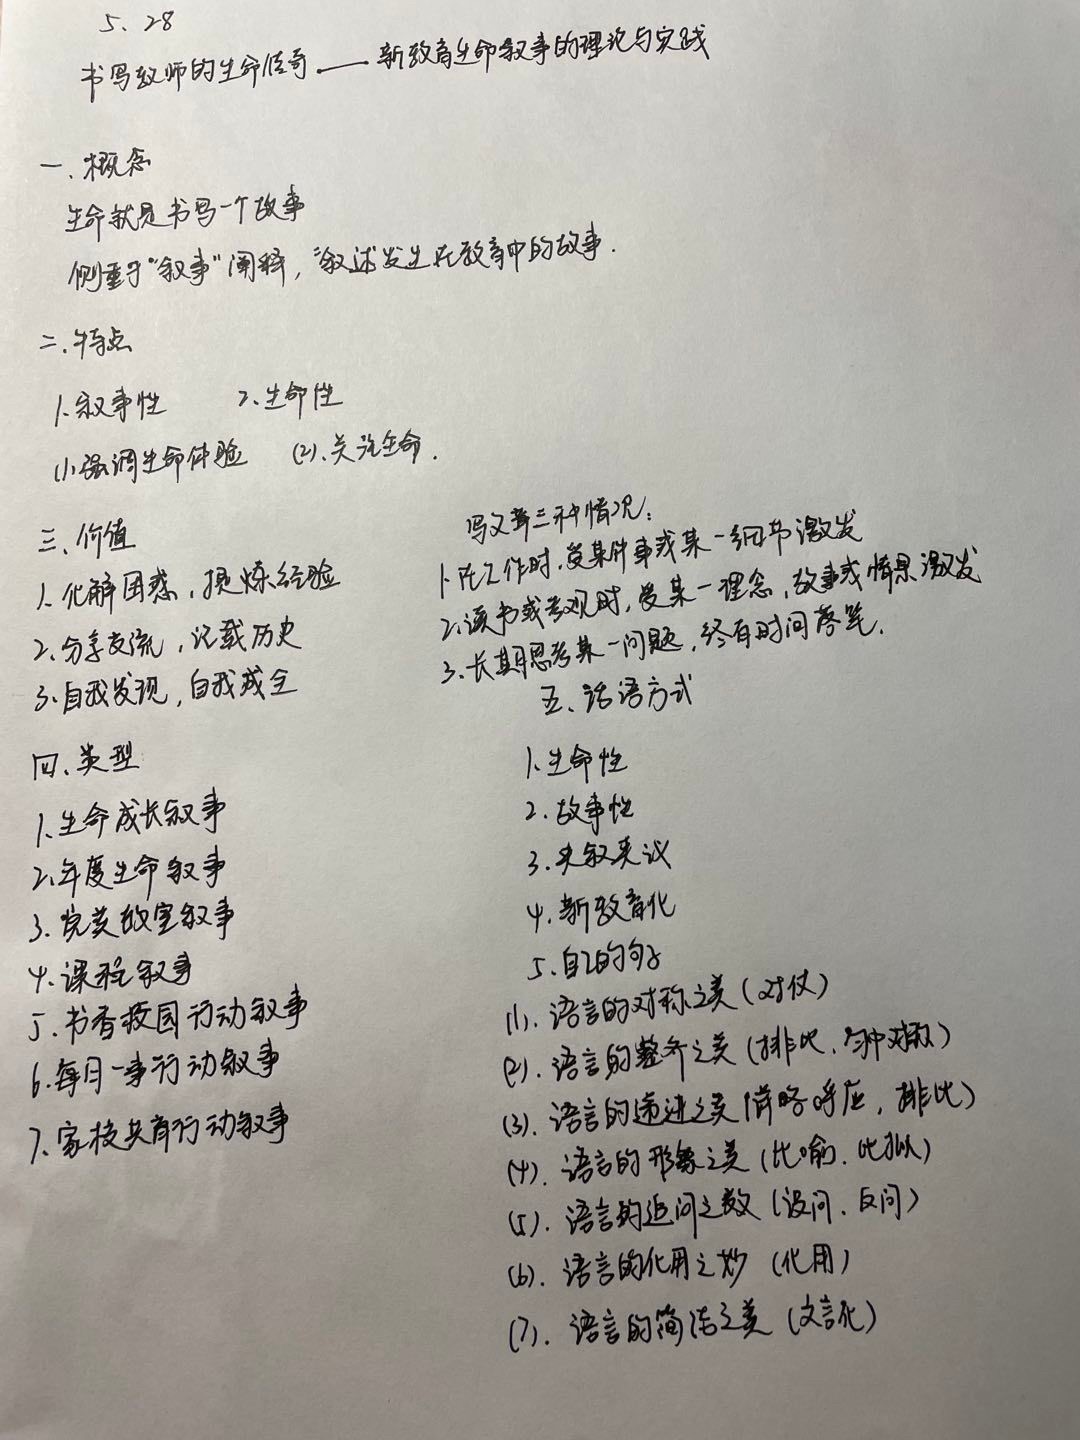 5、28
书写教师的生命传奇——新教育生命叙事的理论与实践
一、概念
生命就是书写一个故事
侧重于"叙事"阐释，叙述发生在教育中的故事.
二、特点
1、叙事性 2、生命性
(1)、强调生命体验 (2)、关注生命.
三、价值
1、化解困惑，提炼经验
2、分享交流，记载历史
3、自我发现，自我成全
四、类型
1、生命成长叙事
2、年度生命叙事
3、完美教室叙事
4、课程叙事
5、书香校园行动叙事
6、每月一事行动叙事
7、家校共育行动叙事
写文章三种情况：
1、在工作时，受某件事或某一细节激发
2、读书或参观时，受某一理念，故事或情景激发
3、长期思考某一问题，终有时间落笔.
五、话语方式
1、生命性
2、故事性
3、夹叙夹议
4、新教育化
5、自己的句子
(1)、语言的对称之美（对仗）
(2)、语言的整齐之美（排比、
(3)、语言的递进之美（前略呼应，排比）
(4)、语言的形象之美（比喻、比拟）
(5)、语言的追问之数（设问、反问）
(6)、语言的化用之妙（化用）
(7)、语言的简洁之美（文言化）